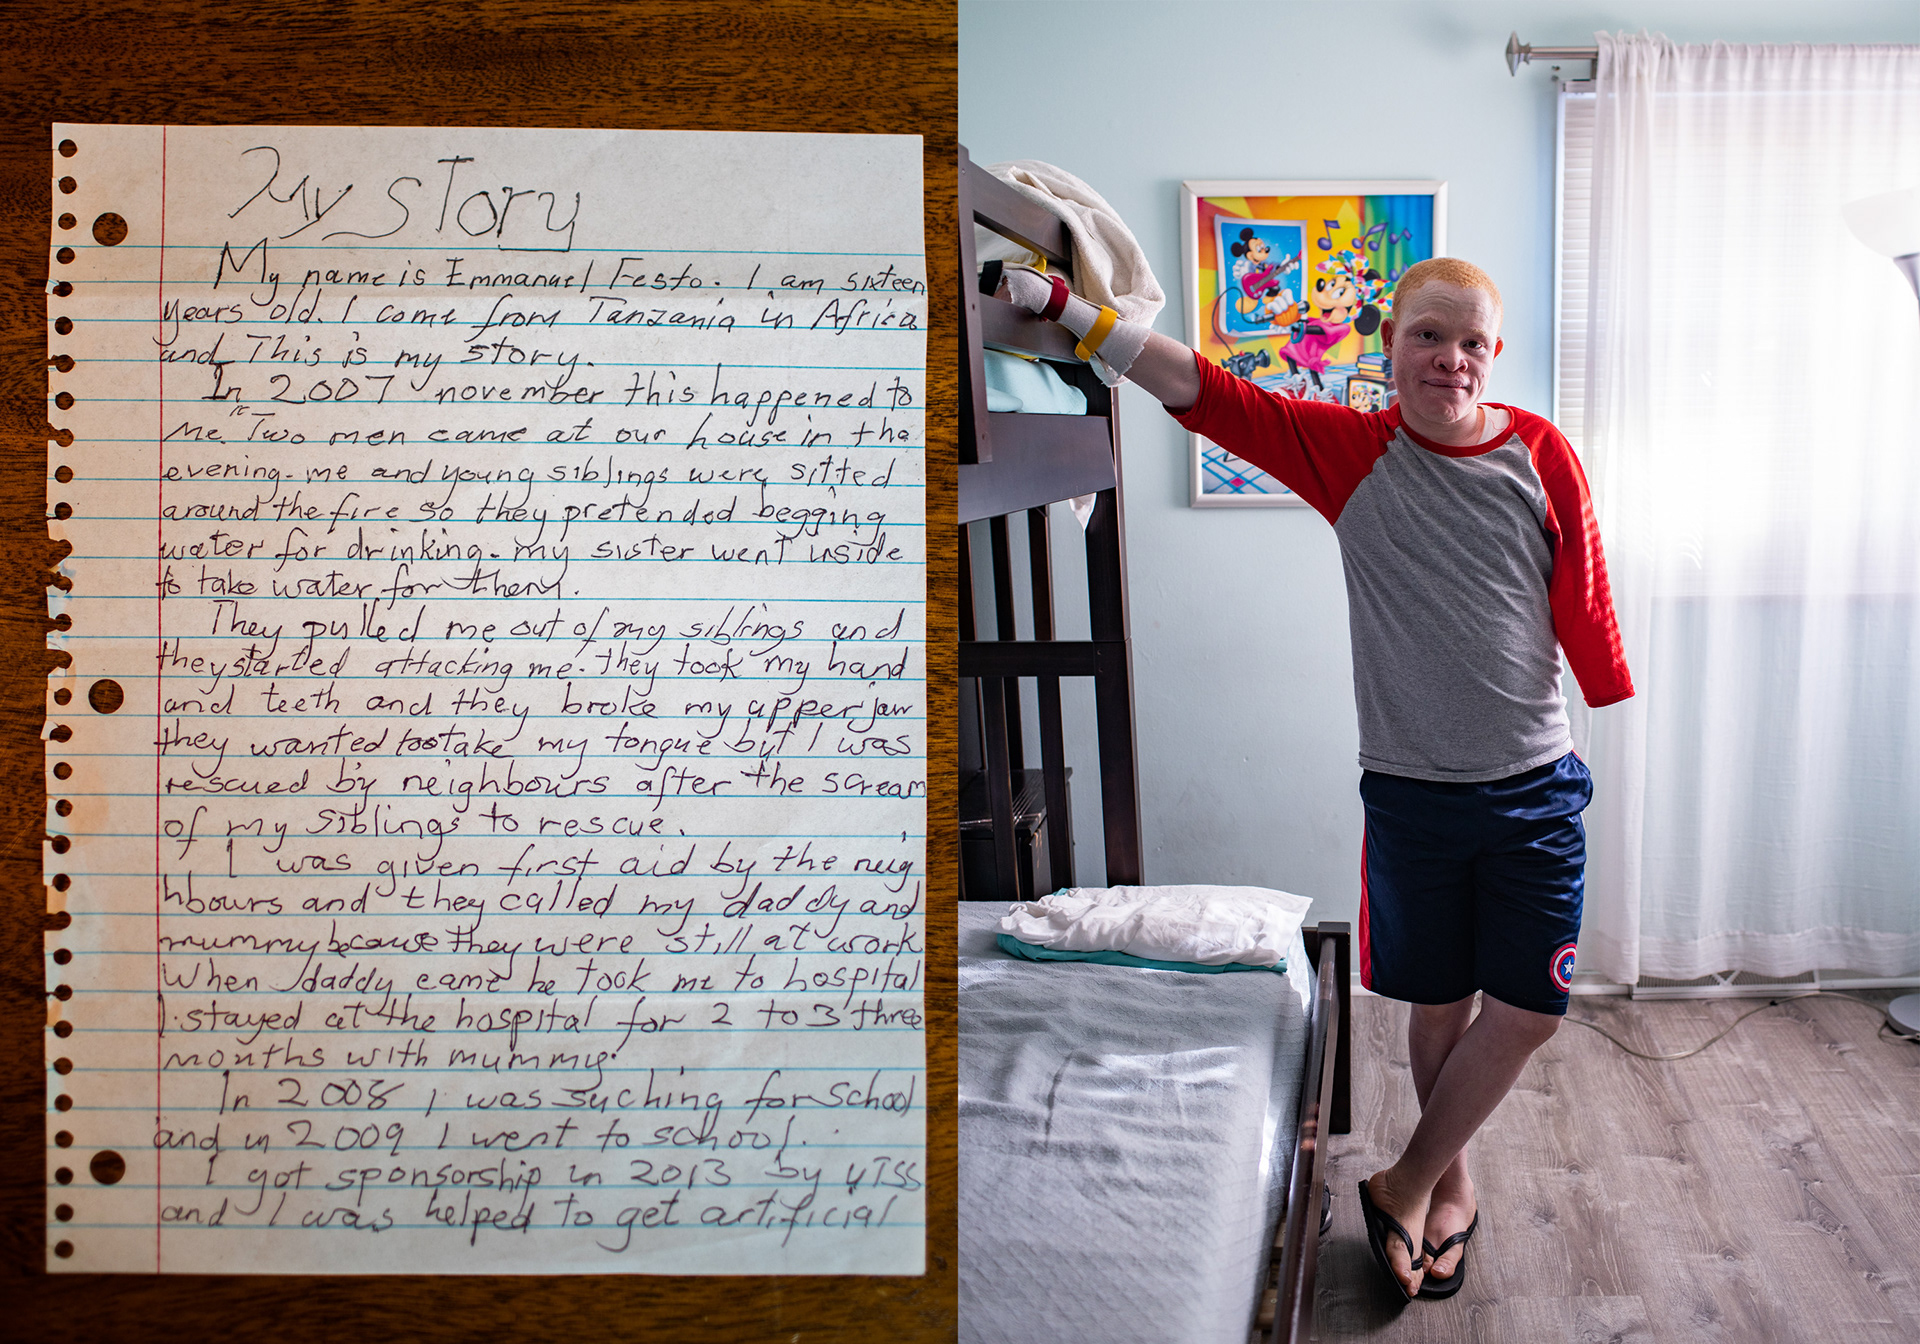 My story
My name is Emmanuel Festo. I am sixteen
years old. I come from Tanzania in Africa
and This is my story.
In 2007 november this happened to
me. Two men came at our house in the
evening. me and young siblings were sitted
around the fire so they pretended begging
water for drinking. my sister went inside
to take water for them.
They pulled me out of my siblings and
they started attacking me. they took my hand
and teeth and they broke my upper jaw
they wanted to take my tongue but I was
rescued by neighbours after the scream
of my siblings to rescue.
I was given first aid by the neig
hbours and they called my daddy and
mummy because they were still at work
when daddy came he took me to hospital
I stayed at the hospital for 2 to 3 three
months with mummy.
In 2008 I was suching for school
and in 2009 I went to school.
I got sponsorship in 2013 by UTSS
and I was helped to get artificial